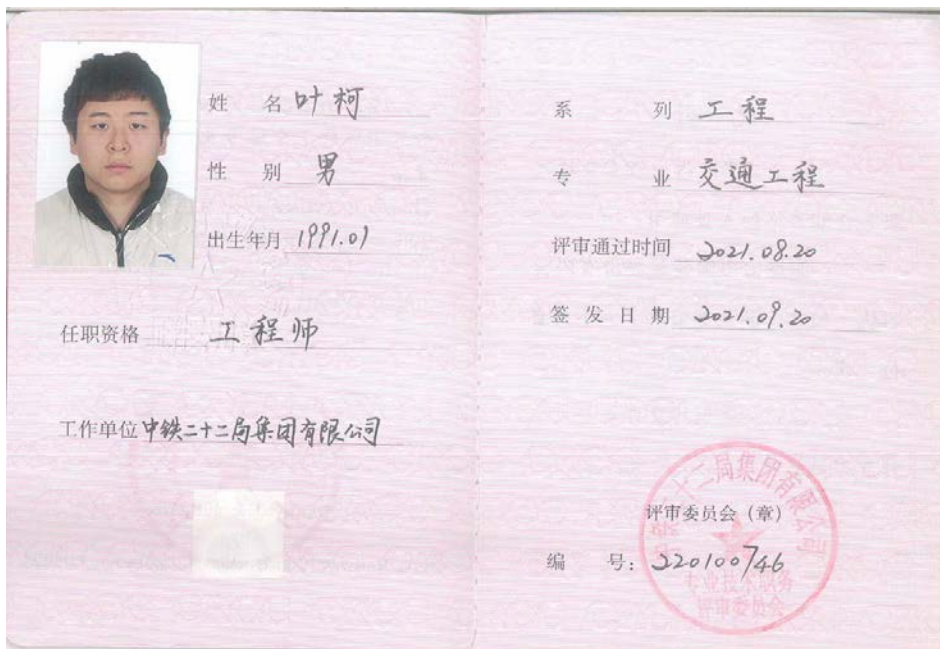 姓 名 叶柯
性 别 男
出生年月 1991.01
任职资格 工程师
工作单位 中铁二十二局集团有限公司
系 列 工程
专 业 交通工程
评审通过时间 2021.08.20
签发日期 2021.09.20
中铁二十二局集团有限公司
评审委员会（章）
编 号：220100746
专业技术职务
评审委员会